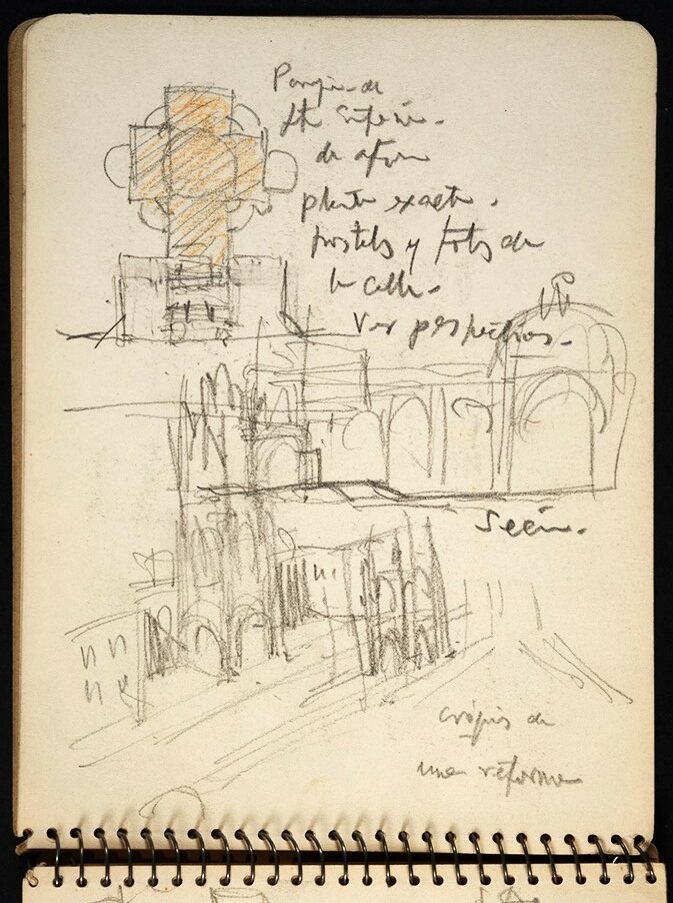 de
de
planta exacta.
postales y fotos de
la calle.
Ver perspectivas.
Sección.
croquis de
una reforma